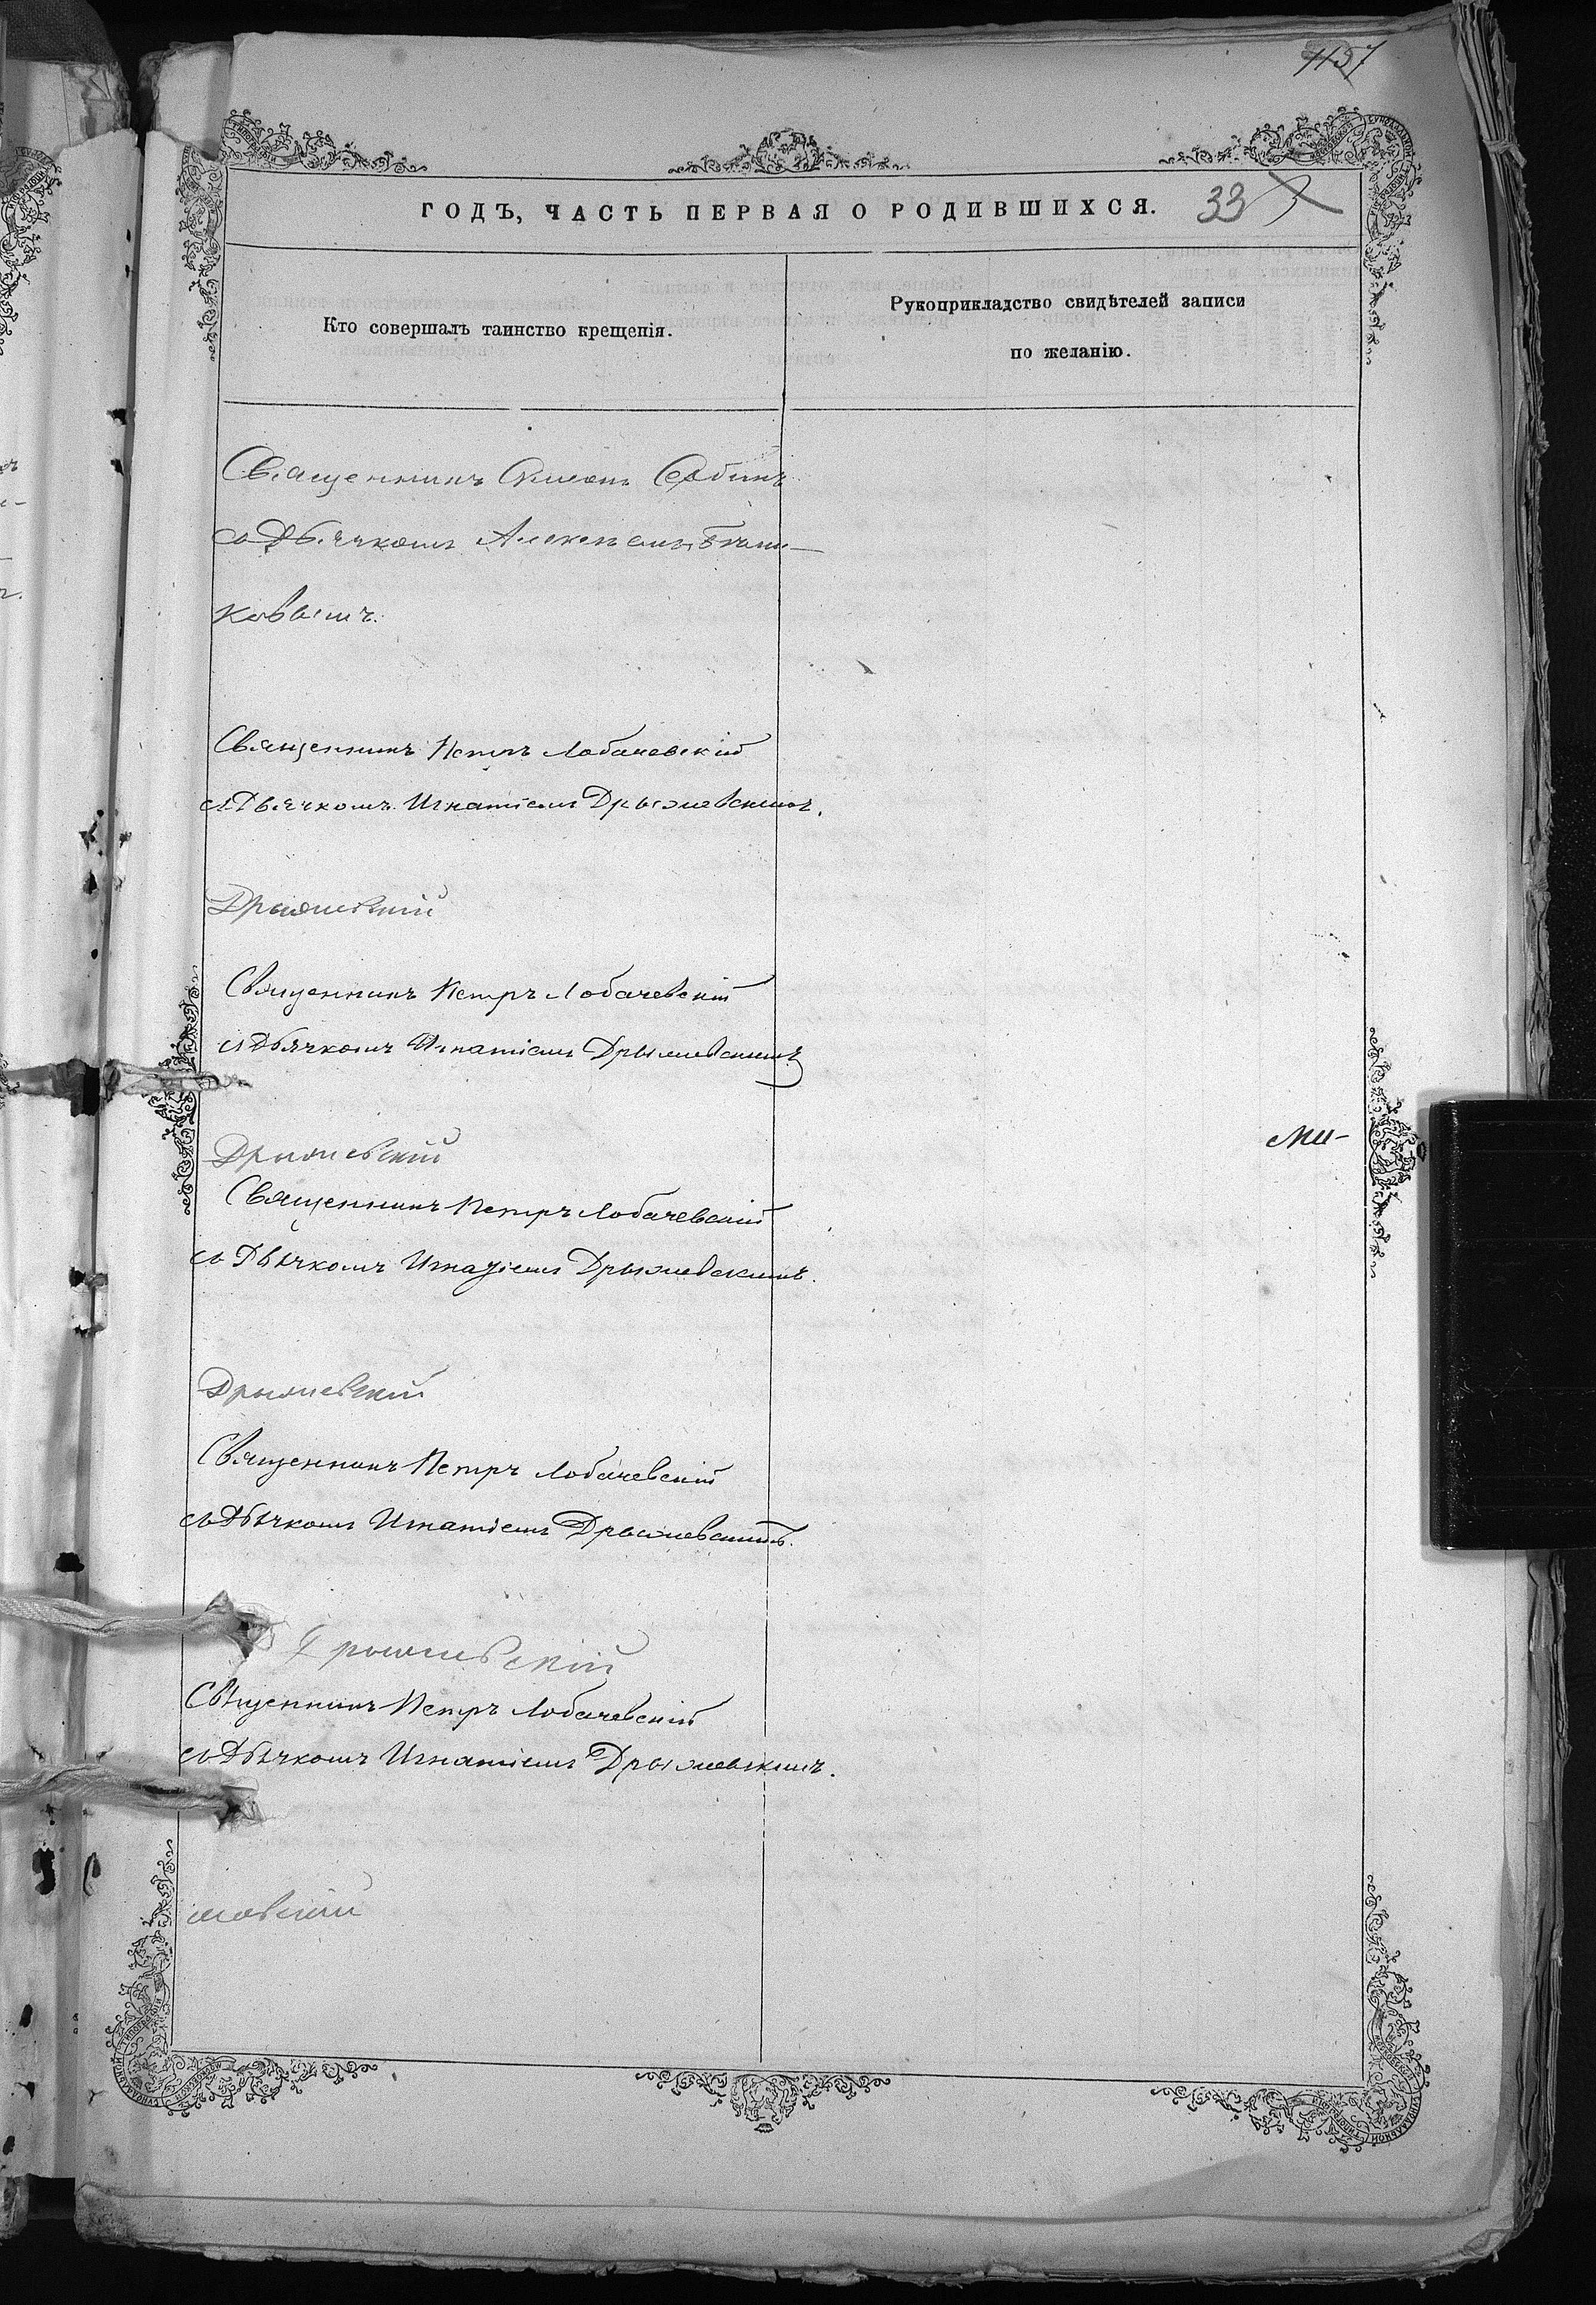 1157
ГОДЪ, ЧАСТЬ ПЕРВАЯ О РОДИВШИХСЯ. 33
Кто совершалъ таинство крещенія.
Рукоприкладство свидѣтелей записи
по желанію.
Священникъ Симеонъ
съ Дьячкомъ Алексѣемъ
ковымъ.
Священникъ Петръ Лобачевскій
съ Дьячкомъ Игнатіемъ Дрымлевскимъ.
Дрымлевскій
Священникъ Петръ Лобачевскій
съ Дьячкомъ Игнатіемъ Дрымлевскимъ
Ми-
Дрымлевскій
Священникъ Петръ Лобачевскій
съ Дьячкомъ Игнатіемъ Дрымлевскимъ.
Дрымлевскій
Священникъ Петръ Лобачевскій
съ Дьячкомъ Игнатіемъ Дрымлевскимъ.
Дрымлевскій
Священникъ Петръ Лобачевскій
съ Дьячкомъ Игнатіемъ Дрымлевскимъ.